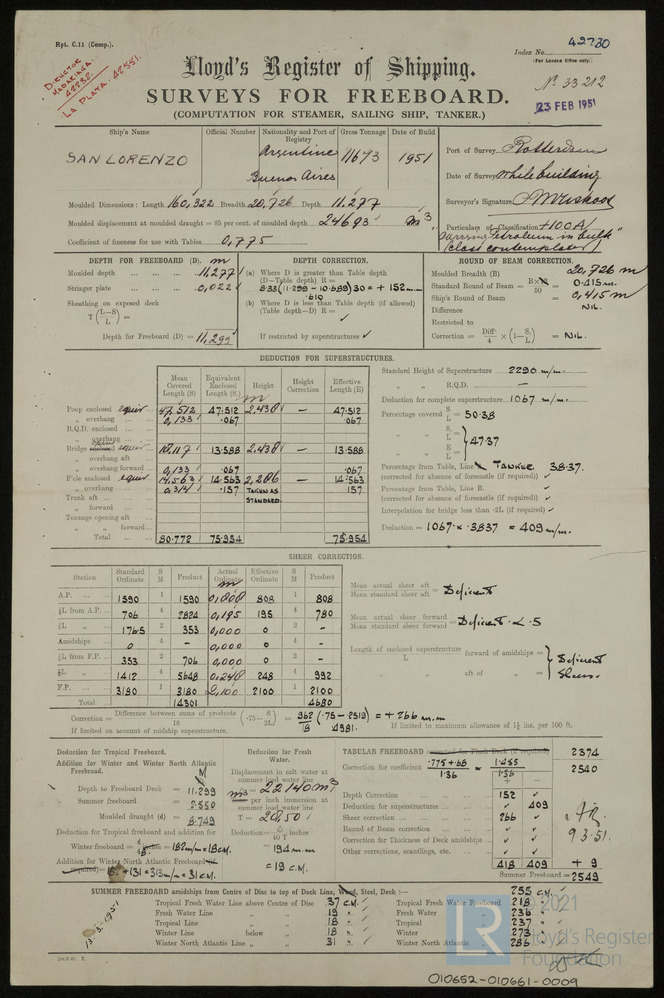 Rpt. C.11 (Comp.).
Index No. 42730
(For London Office only.)
DIRECTOR
MADARIAGA
42732.
LA PLATA. 42551.
Lloyd's Register of Shipping.
No. 33212
SURVEYS FOR FREEBOARD.
23 FEB 1951
(COMPUTATION FOR STEAMER, SAILING SHIP, TANKER.)
Ship's Name
Official Number
Nationality and Port of Registry
Gross Tonnage
Date of Build
SAN LORENZO
Argentine
Buenos Aires
11673
1951
Port of Survey Rotterdam
Date of Survey While building
Surveyor's Signature
Particulars of Classification +100A1
"Carrying Petroleum in bulk"
(class contemplated)
Moulded Dimensions: Length 160,322 Breadth 20,726 Depth 11.277
Moulded displacement at moulded draught = 85 per cent. of moulded depth 24693 m3
Coefficient of fineness for use with Tables 0,775
DEPTH FOR FREEBOARD (D). m
Moulded depth 11,277
Stringer plate 0,022
Sheathing on exposed deck
T (L-S / L) =
Depth for Freeboard (D) = 11,299
DEPTH CORRECTION.
(a) Where D is greater than Table depth
(D-Table depth) R =
(b) Where D is less than Table depth (if allowed)
(Table depth-D) R =
If restricted by superstructures
ROUND OF BEAM CORRECTION.
Moulded Breadth (B) 20,726 m
Standard Round of Beam = B×12 / 50 = 0.415 m.
Ship's Round of Beam = 0,415 m
Difference NIL.
Restricted to
Correction = Diff / 4 × (1-S1 / L) = NIL.
DEDUCTION FOR SUPERSTRUCTURES.
Mean Covered Length (S)
Equivalent Enclosed Length (S1)
Height
Height Correction
Effective Length (E)
Poop enclosed equiv 47,512 47.512 2,438 — 47.512
„ overhang 0,133 .067 .067
R.Q.D. enclosed
„ overhang
Bridge equiv 13.588 2.438 — 13.588
„ overhang aft
„ overhang forward 0,133 .067 .067
F'cle enclosed equiv 14,563 14.563 2,286 — 14.563
„ overhang 0,314 .157 TAKEN AS STANDARD. .157
Trunk aft
„ forward
Tonnage opening aft
„ „ forward
Total 80.772 75.954 75.954
Standard Height of Superstructure 2290 m/m.
„ „ R.Q.D. —
Deduction for complete superstructure 1067 m/m.
Percentage covered S / L = 50.38
„ „ S1 / L = 47.37
„ „ E / L =
Percentage from Table, Line TANKER 38.37.
(corrected for absence of forecastle (if required))
Percentage from Table, Line B.
(corrected for absence of forecastle (if required))
Interpolation for bridge less than .2L (if required)
Deduction = 1067 × .3837 = 409 m/m.
SHEER CORRECTION.
Station
Standard Ordinate
S M
Product
Actual Ordinate
Effective Ordinate
S M
Product
A.P. 1590 1 1590 0,808 808 1 808
⅙L from A.P. 706 4 2824 0,195 195 4 780
⅓L „ 176.5 2 353 0,000 0 2 -
Amidships 0 4 - 0,000 0 4 -
⅓L from F.P. 353 2 706 0,000 0 2 -
⅙L „ 1412 4 5648 0,248 248 4 992
F.P. 3180 1 3180 2,100 2100 1 2100
Total 14301 4680
Mean actual sheer aft / Mean standard sheer aft = Deficient
Mean actual sheer forward / Mean standard sheer forward = Deficient < .5
Length of enclosed superstructure forward of amidships = / L
„ „ aft of „ =
Deficient Sheer.
Correction = Difference between sums of products / 18 (.75 - S / 2L) = 962 / 18 (.75 - .2519) = + 266 m.m
If limited on account of midship superstructure.
If limited to maximum allowance of 1½ ins. per 100 ft.
Deduction for Tropical Freeboard.
Addition for Winter and Winter North Atlantic Freeboard.
M
Depth to Freeboard Deck = 11.299
Summer freeboard = 2.550
Moulded draught (d) = 8.749
Deduction for Tropical freeboard and addition for
Winter freeboard = d / 48 = 182 m/m = 18 cm.
Addition for Winter North Atlantic Freeboard (if required) = 182 + 131 = 313 m/m = 31 cm.
Deduction for Fresh Water.
Displacement in salt water at summer load water line
= 22140 m3
Tons per inch immersion at summer load water line
T = 28.50
Deduction = Δ / 40 T inches
= 194 m.m
= 19 cm.
TABULAR FREEBOARD corrected for Flush Deck (if required) 2374
Correction for coefficient .775+.68 / 1.36 = 1.455 / 1.36 2540
+ -
Depth Correction 152
Deduction for superstructures 409
Sheer correction 266
Round of Beam correction
Correction for Thickness of Deck amidships
Other corrections, scantlings, etc.
418 409 + 9
Summer Freeboard = 2549
9.3.51.
SUMMER FREEBOARD amidships from Centre of Disc to top of Deck Line, Wood, Steel, Deck :— 255 C.M.
Tropical Fresh Water Line above Centre of Disc 37 C.M. Tropical Fresh Water Freeboard 218 „
Fresh Water Line „ „ 19 Fresh Water „ 236 „
Tropical Line „ „ 18 Tropical „ 237 „
Winter Line below „ 18 Winter „ 273 „
Winter North Atlantic Line „ „ 31 Winter North Atlantic „ 286 „
13.3.1951
LR
© 2021
Lloyd's Register
Foundation
010652-010661-0009